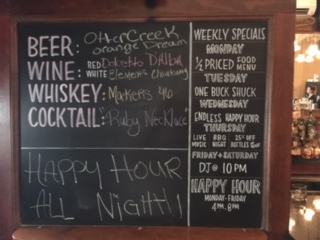 BEER: Otter Creek
orange Dream
WINE: RED Dolcetto D'Alba
WHITE Elemental Chardonnay
WHISKEY: Makers 46
COCKTAIL: "Ruby Necklace"
HAPPY HOUR
ALL NIGHT!!
WEEKLY SPECIALS
MONDAY
1/2 PRICED FOOD MENU
TUESDAY
ONE BUCK SHUCK
WEDNESDAY
ENDLESS HAPPY HOUR
THURSDAY
LIVE BBQ 25% OFF
MUSIC NIGHT BOTTLES
FRIDAY + SATURDAY
DJ @ 10 PM
HAPPY HOUR
MONDAY-FRIDAY
4PM-8PM